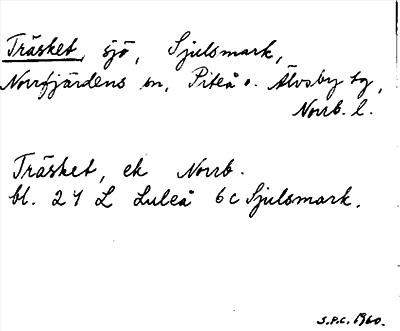 Träsket, sjö, Sjulsmark,
Norrfjärdens sn, Piteå o. Älvsby tg,
Norrb. l.
Träsket, ek Norrb.
bl. 24 L Luleå 6 c Sjulsmark.
S.P.C. 1960.